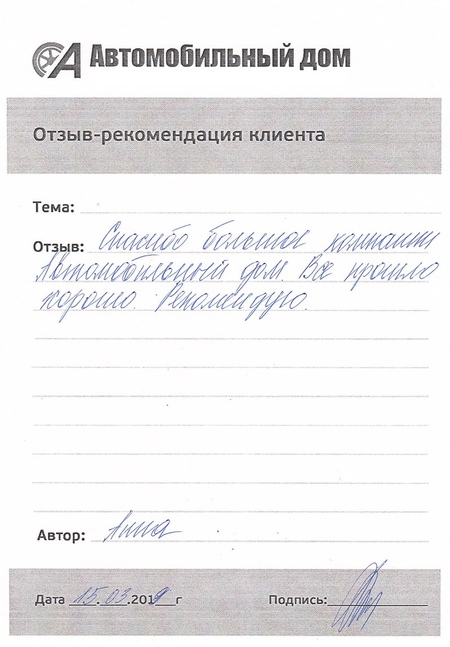 Автомобильный дом
Отзыв-рекомендация клиента
Тема:
Отзыв: Спасибо большое компании
Автомобильный дом. Все прошло
хорошо. Рекомендую.
Автор: Анна
Дата 15.03.2019 г Подпись: